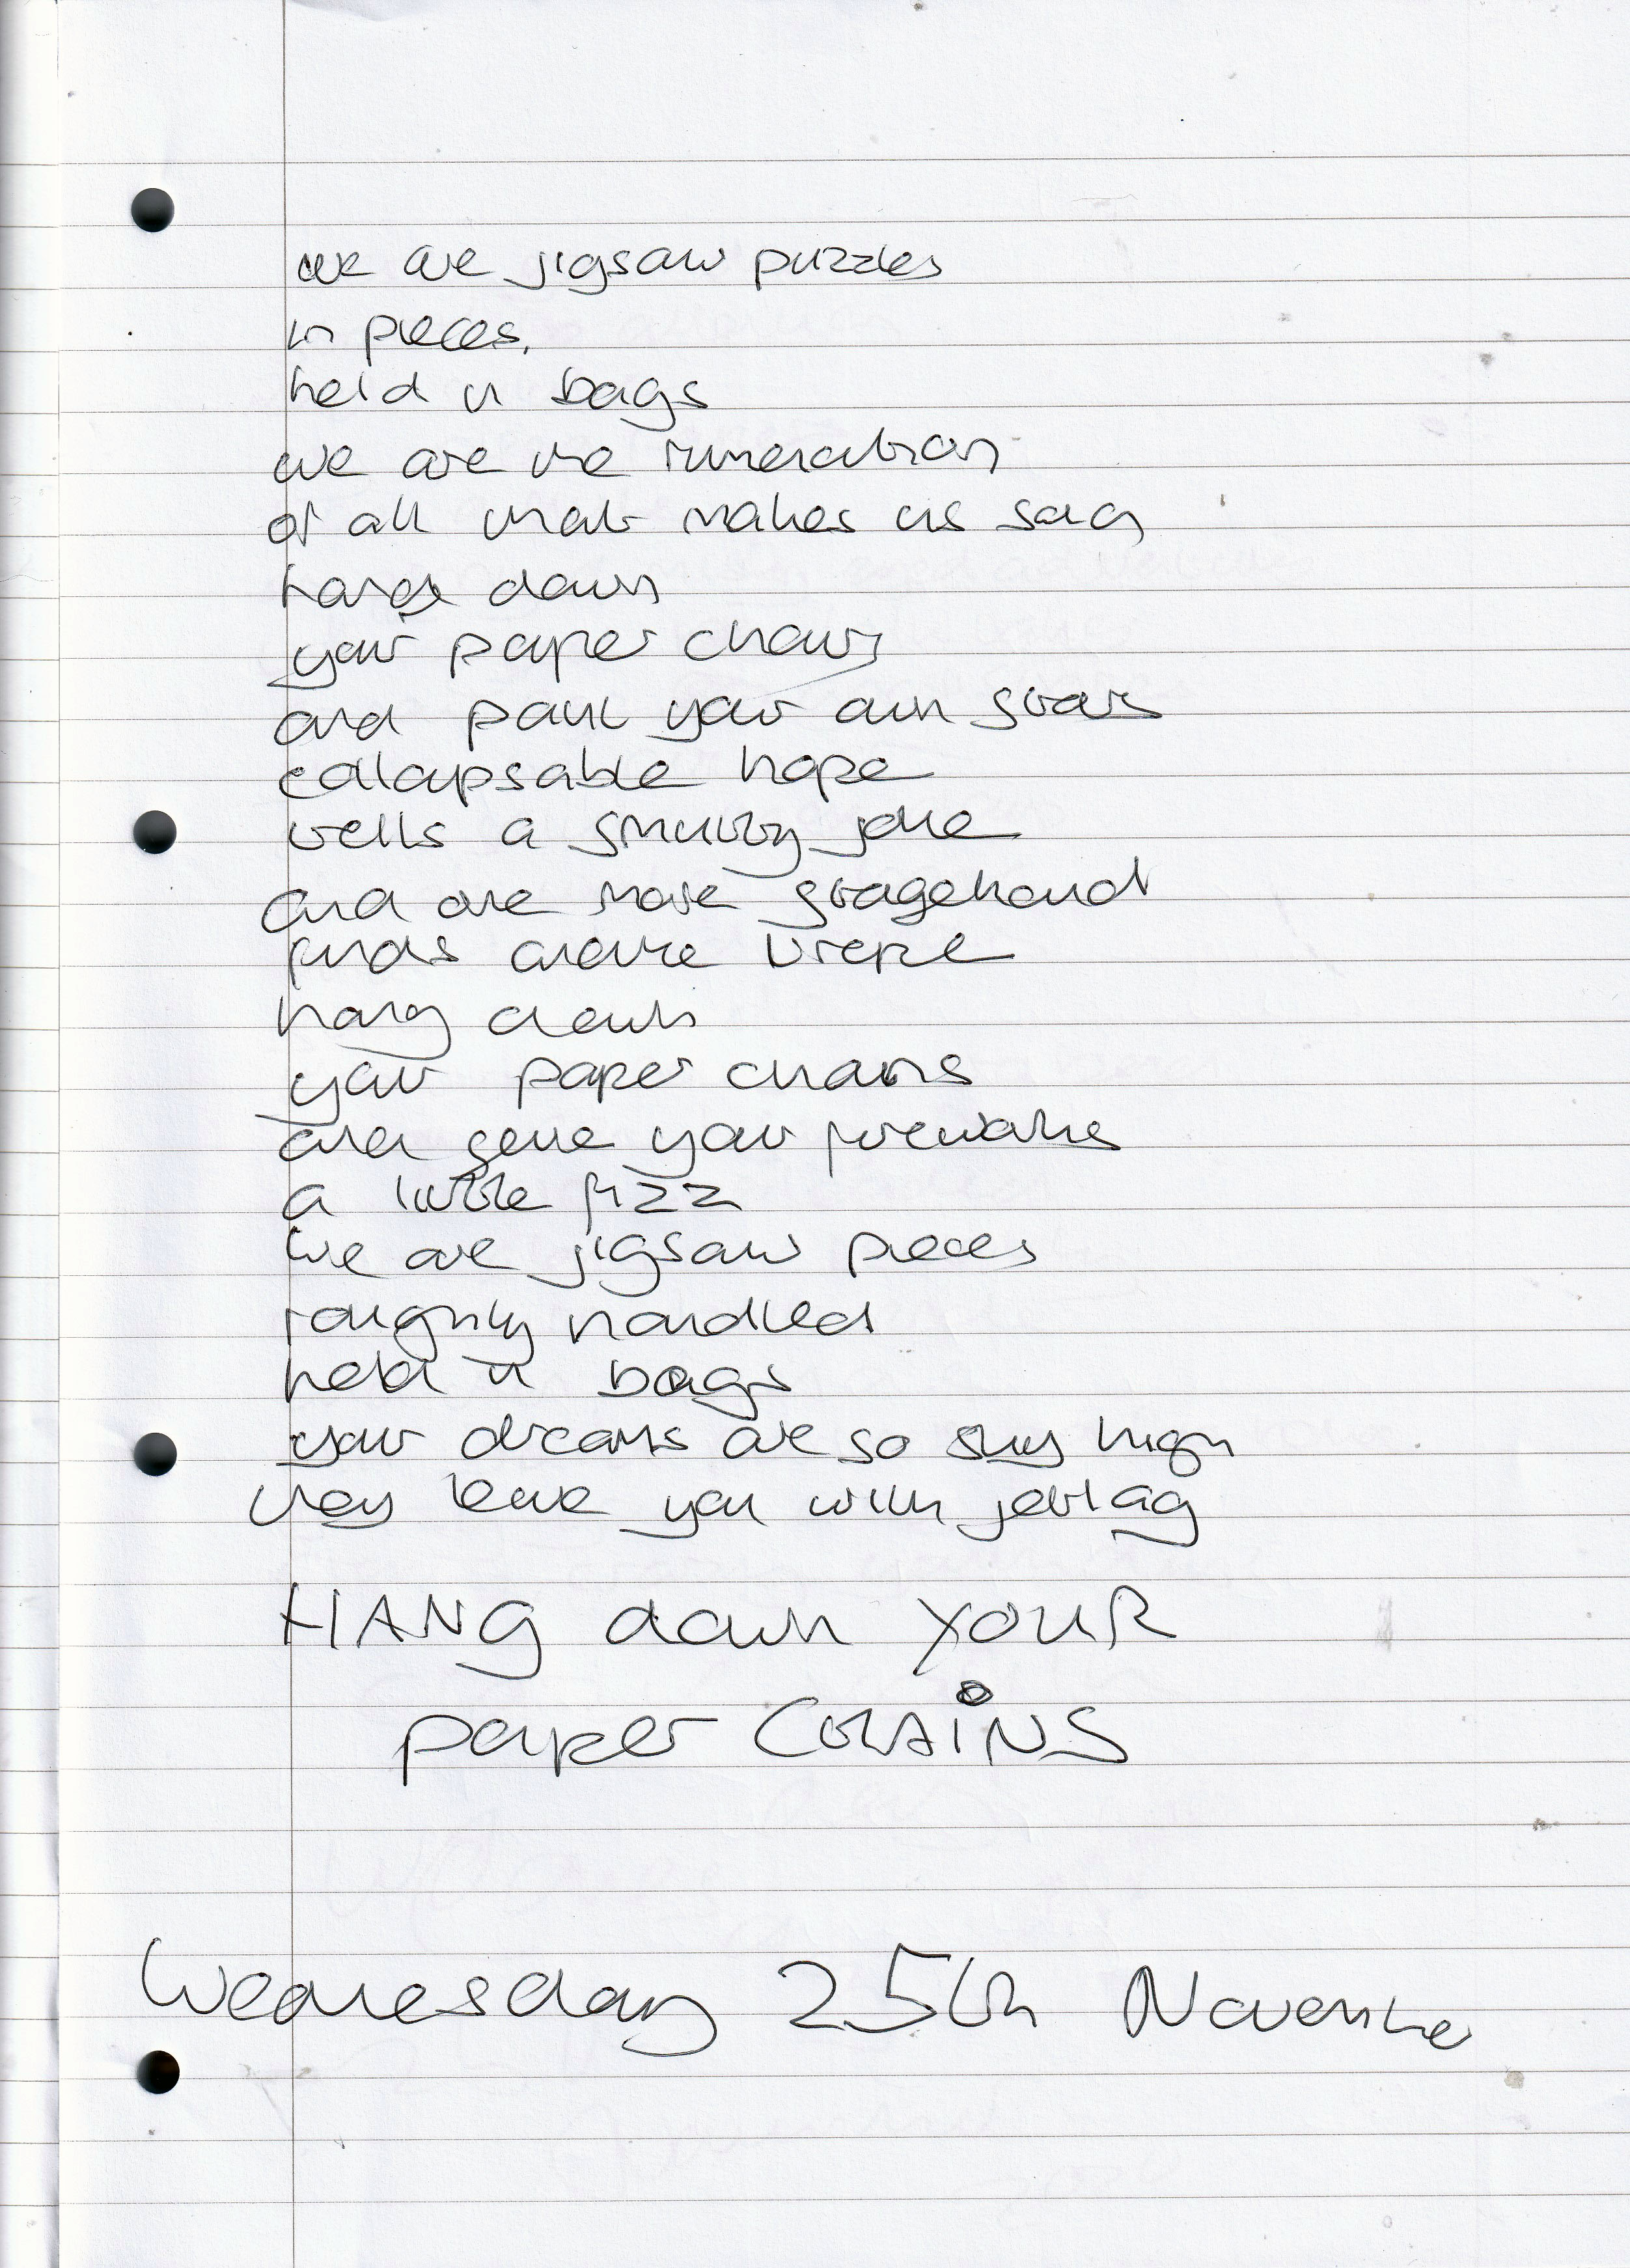 we are jigsaw puzzles
in pieces,
held in bags
we are the rumeration
of all that makes us sag
hang down
your paper chains
and paint your own stars
collapsable hope
tells a smutty joke
and one more stagehand
finds another
hang down
your paper chains
and give your fireworks
a little fizz
we are jigsaw pieces
roughly handled
held in bags
your dreams are so sky high
they leave you with jetlag
HANG down YOUR
paper CHAiNS
Wednesday 25th November